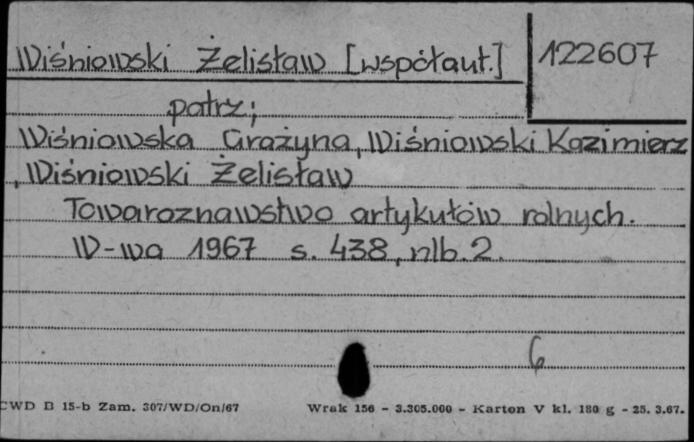 Wiśniowski Żelisław [współaut.] 122607
patrz;
Wiśniowska Grażyna, Wiśniowski Kazimierz
, Wiśniowski Żelisław
Towaroznawstwo artykułów rolnych.
W-wa 1967 s. 438, nlb. 2.
6
CWD B 15-b Zam. 307/WD/On/67 Wrak 156 - 3.305.000 - Karton V kl. 180 g - 25. 3.67.